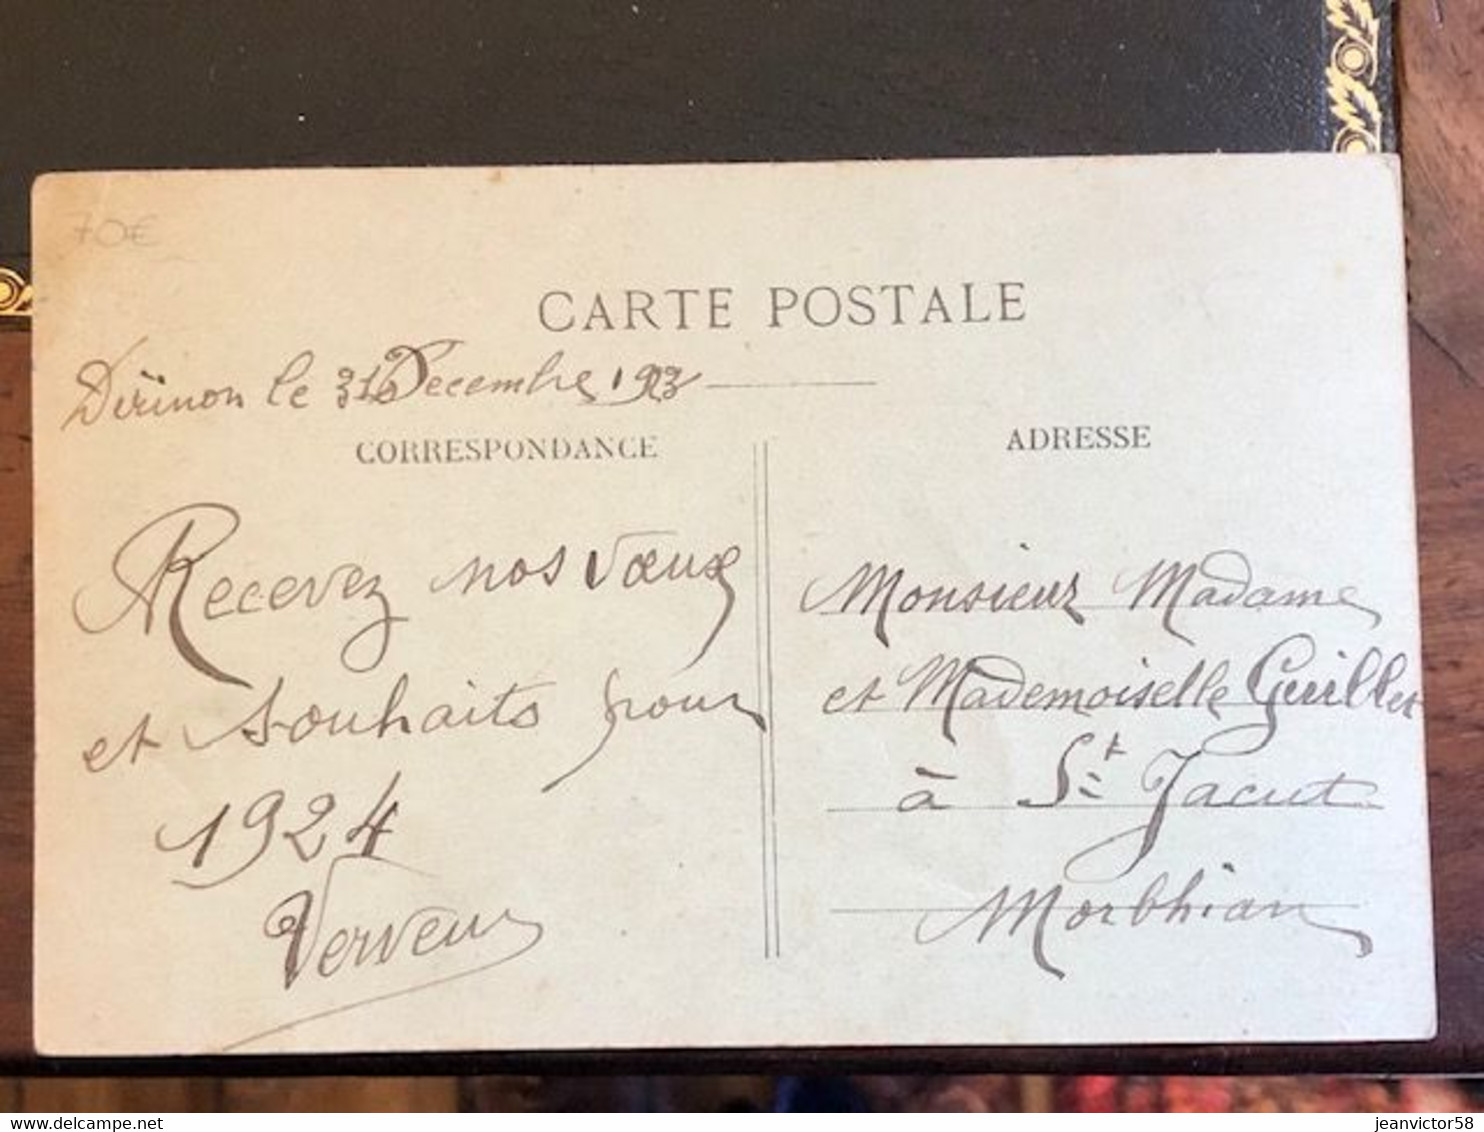 70€
CARTE POSTALE
Dirinon le 31 Decembre 1923
CORRESPONDANCE
ADRESSE
Recevez nos vœux
et souhaits pour
1924
Verveur
Monsieur Madame
et Mademoiselle Guillet
à St Jacut
Morbhian
jeanvictor58